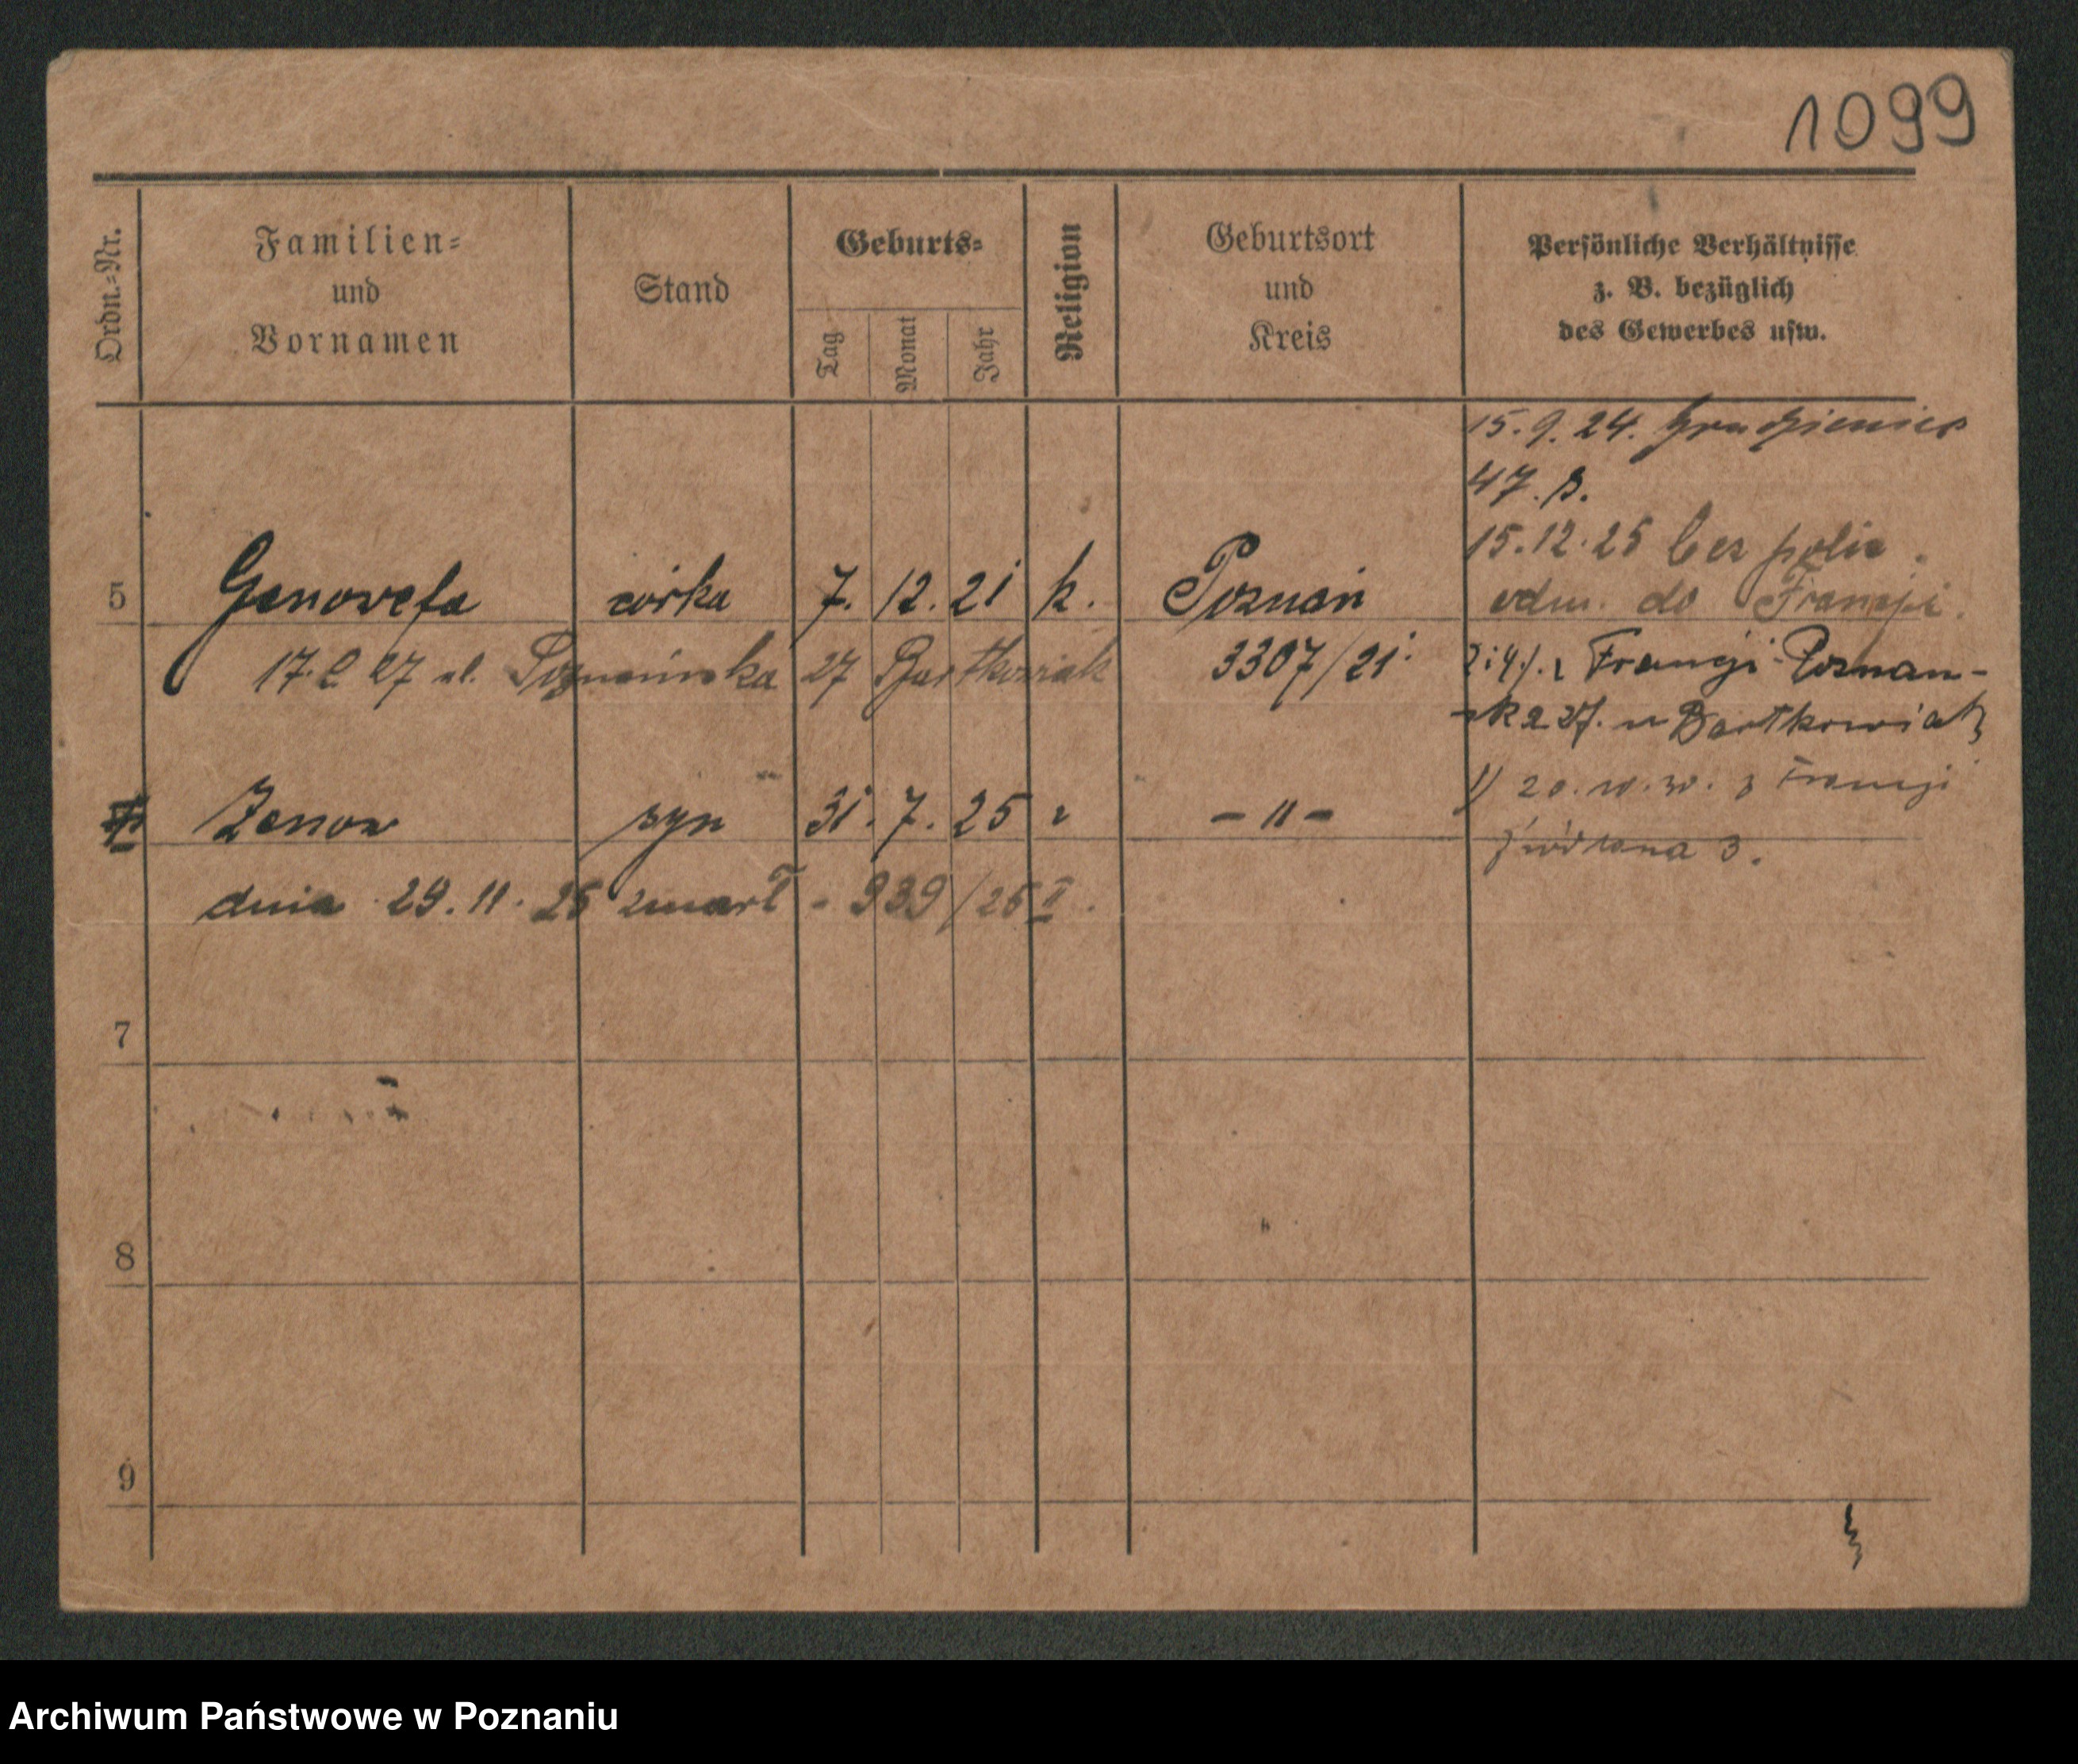 1099
Ordn.-Nr.
Familien-
und
Vornamen
Stand
Geburts-
Tag
Monat
Jahr
Religion
Geburtsort
und
Kreis
Persönliche Verhältnisse
z. B. bezüglich
des Gewerbes usw.
15.9.24. Grudzieniec
47.
15.12.25 bez polic.
5 Genowefa córka 7. 12. 21 k. Poznań odm. do Francji.
17. 27 ul. Poznańska 27 Bartkowiak 3307/21
Francji Poznań-
ska 27. u Bartkowiak
Zenon syn 31. 7. 25 - " -
1) 20. z Francji
3.
dnia 29.11. zmarł - 939/26 II.
7
8
9
Archiwum Państwowe w Poznaniu